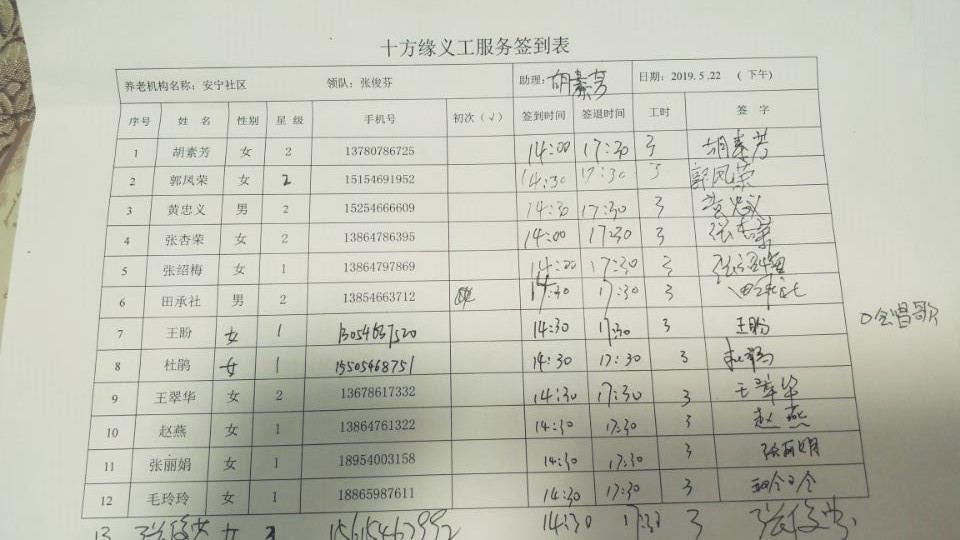 十方缘义工服务签到表
养老机构名称：安宁社区 领队：张俊芬 助理：胡素芳 日期：2019.5.22 （下午）
序号 姓 名 性别 星 级 手机号 初次（√） 签到时间 签退时间 工时 签 字
1 胡素芳 女 2 13780786725 14:00 17:30 3 胡素芳
2 郭凤荣 女 2 15154691952 14:30 17:30 3 郭凤荣
3 黄忠义 男 2 15254666609 14:30 17:30 3 黄忠义
4 张杏荣 女 2 13864786395 14:00 17:30 3 张杏荣
5 张绍梅 女 1 13864797869 14:00 17:30 3 张绍梅
6 田承社 男 2 13854663712 14:30 17:30 3 田承社
7 王盼 女 1 13054687520 14:30 17:30 3 王盼 会唱歌
8 杜鹃 女 1 15505468751 14:30 17:30 3 杜鹃
9 王翠华 女 2 13678617332 14:30 17:30 3 王翠华
10 赵燕 女 1 13864761322 14:30 17:30 3 赵燕
11 张丽娟 女 1 18954003158 14:30 17:30 3 张丽娟
12 毛玲玲 女 1 18865987611 14:30 17:30 3
13 张俊芬 女 14:30 17:30 3 张俊芬